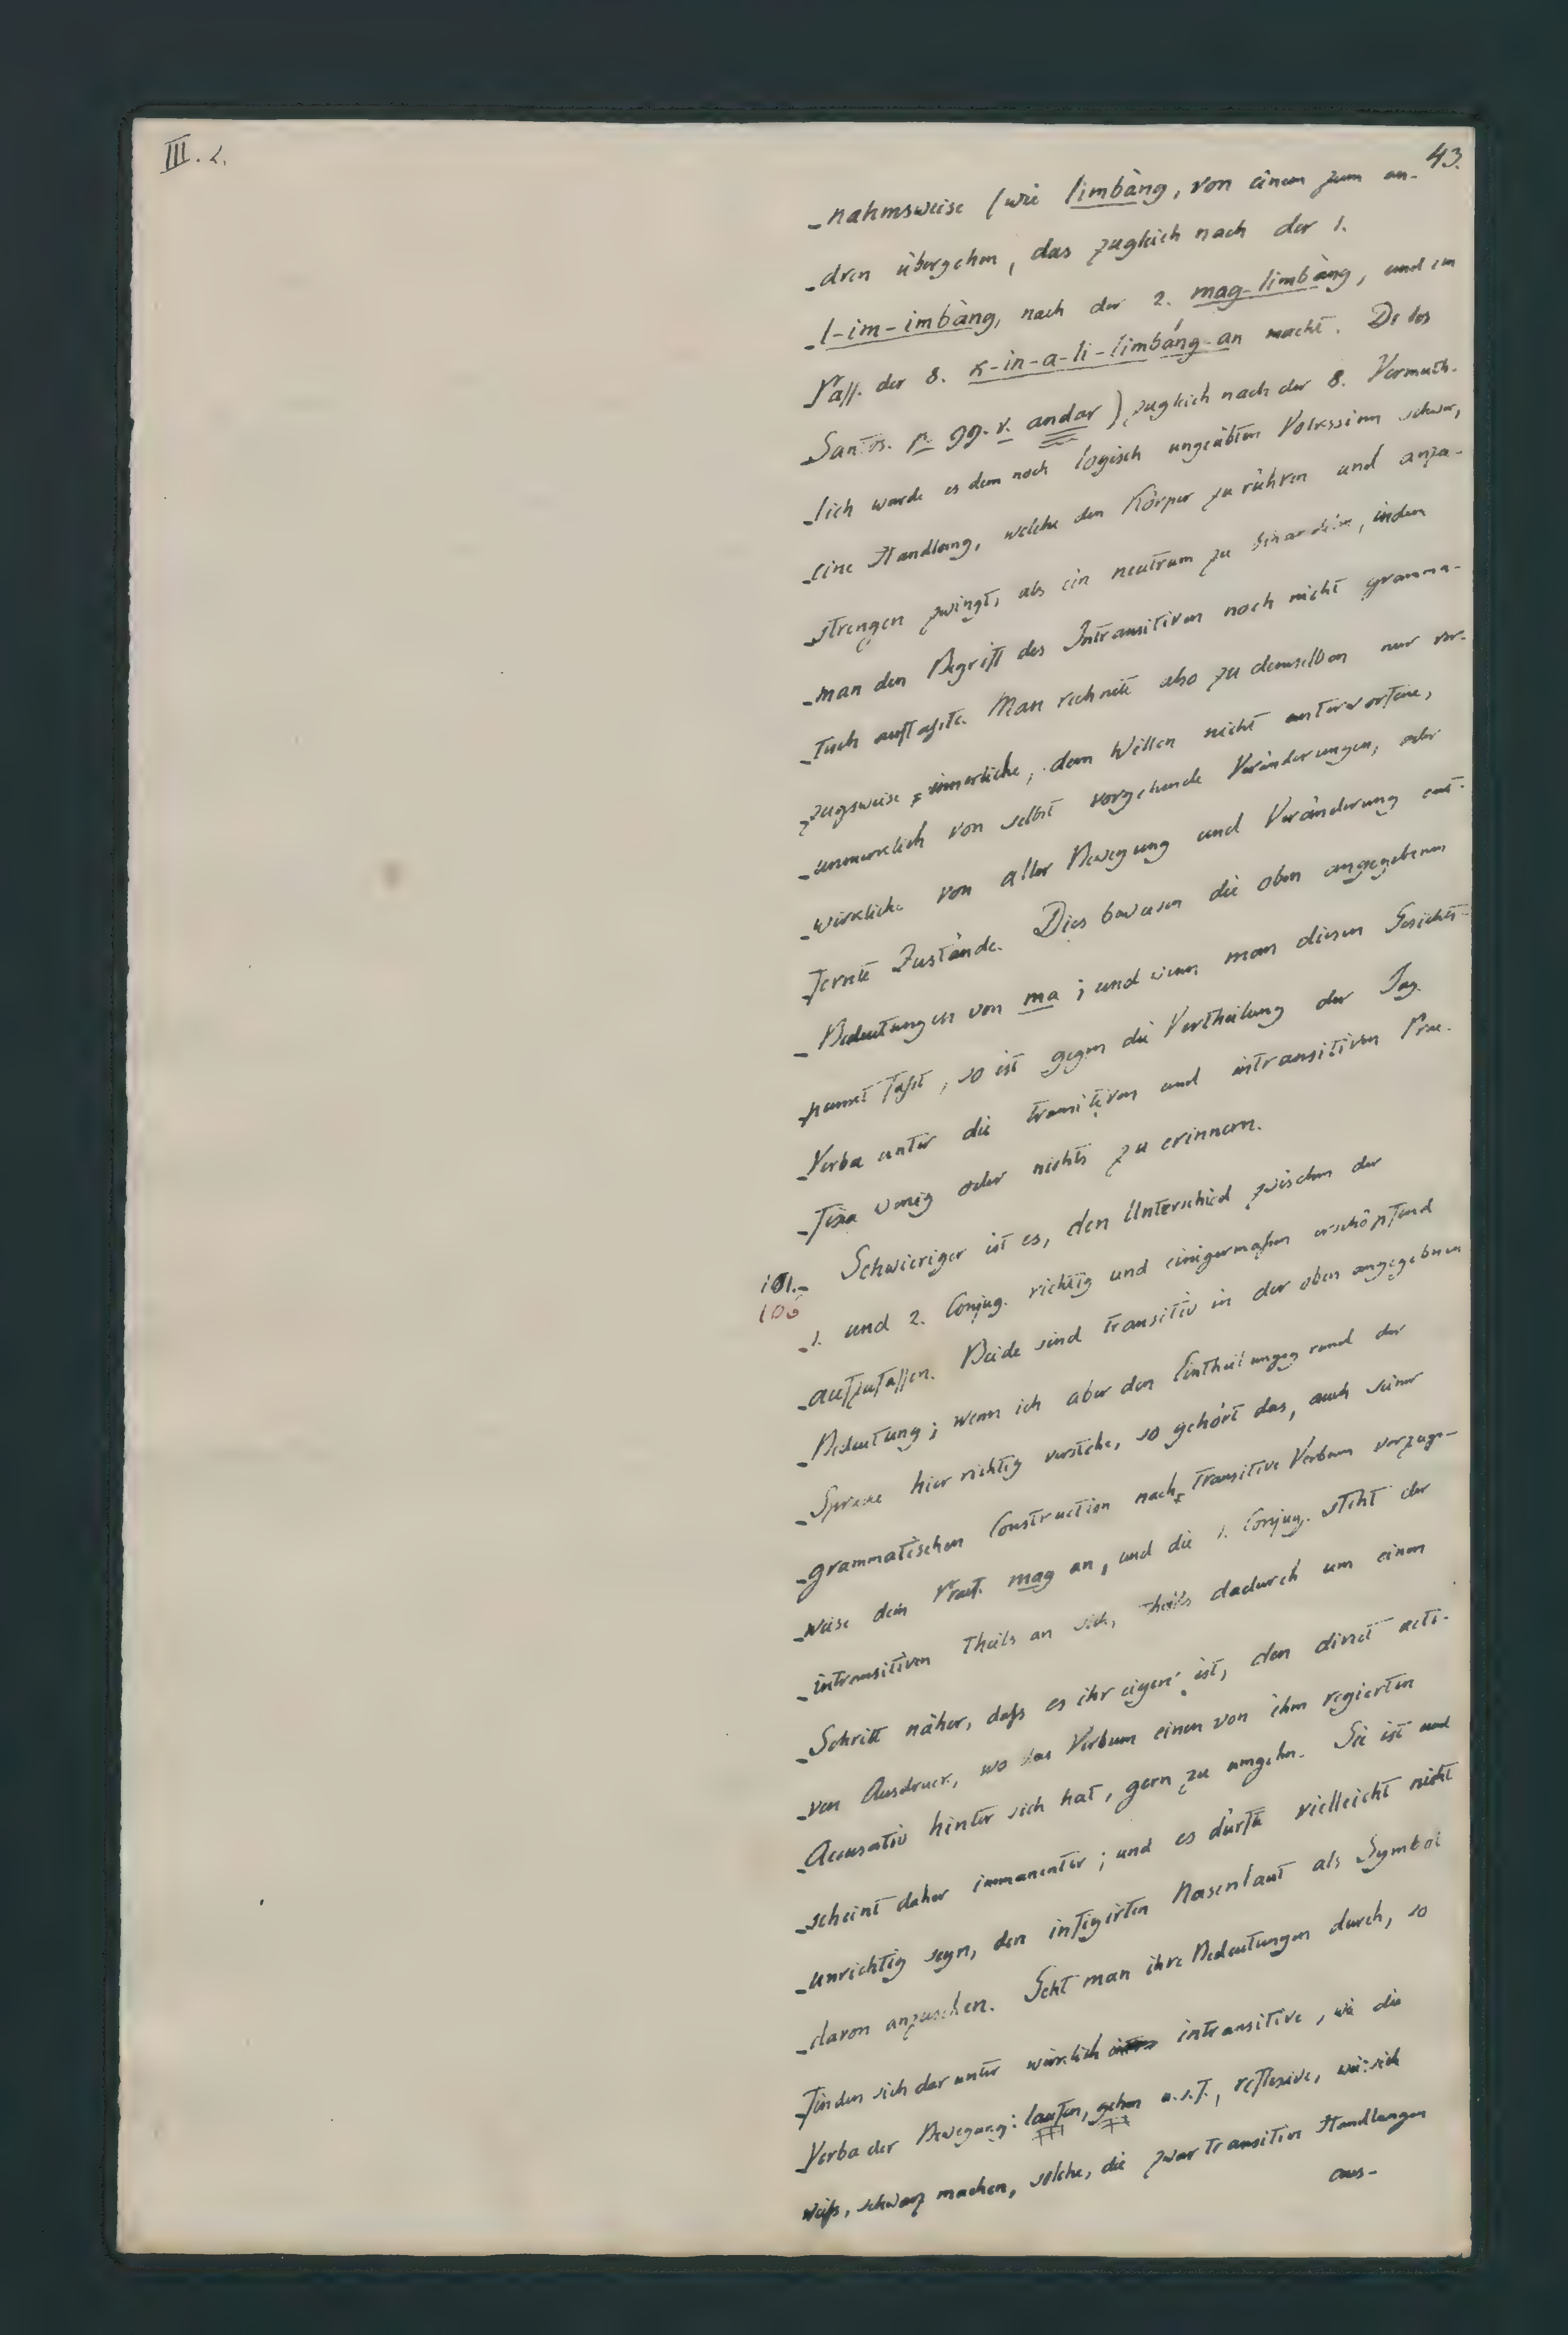 III. 2.
43.
-nahmsweise (wie limbàng, von einem zum an-
-dren übergehn, das zugleich nach der 1.
-l-im-imbàng, nach der 2. mag-limbàng, und im
Pass. der 8. k-in-a-li-limbáng-an macht. De los
Santos. p. 99. v. andar) zugleich nach der 8. Vermuth-
-lich wurde es dem noch logisch ungeübten Volkssinn schwer,
-eine Handlung, welche den Körper zu rühren und anzu-
-strengen zwingt, als ein neutrum zu behandeln, indem
-man den Begriff des Intransitiven noch nicht gramma-
-tisch auffaßte. Man rechnete also zu demselben nur vor-
-zugsweise innerliche, dem Willen nicht unterworfene,
-unmerklich von selbst vorgehende Veränderungen, oder
-wirkliche von aller Bewegung und Veränderung ent-
-fernte Zustände. Dies beweisen die oben angegebenen
-Bedeutungen von ma; und wenn man diesen Gesichts-
-punct faßt, so ist gegen die Vertheilung der Tag.
-Verba unter die transitiven und intransitiven Prae-
-fixa wenig oder nichts zu erinnern.
101.- Schwieriger ist es, den Unterschied zwischen der
106
-1. und 2. Conjug. richtig und einigermaßen erschöpfend
-aufzufassen. Beide sind transitiv in der oben angegebenen
-Bedeutung; wenn ich aber den Eintheilungsgrund der
-Sprache hier richtig verstehe, so gehört das, auch seiner
-grammatischen Construction nach, transitive Verbum vorzugs-
-weise dem Praef. mag an, und die 1. Conjug. steht der
-intransitiven theils an sich, theils dadurch um einen
-Schritt näher, daß es ihr eigen ist, den direct acti-
-ven Ausdruck, wo das Verbum einen von ihm regierten
-Accusativ hinter sich hat, gern zu umgehn. Sie ist und
-scheint daher immanenter; und es dürfte vielleicht nicht
-unrichtig seyn, den infigirten Nasenlaut als Symbol
-davon anzusehen. Geht man ihre Bedeutungen durch, so
-finden sich darunter wirklich intransitive, wie die
Verba der Bewegung: laufen, gehen u.s.f., reflexive, wie: sich
weiß, schwarz machen, solche, die zwar transitive Handlungen
aus-